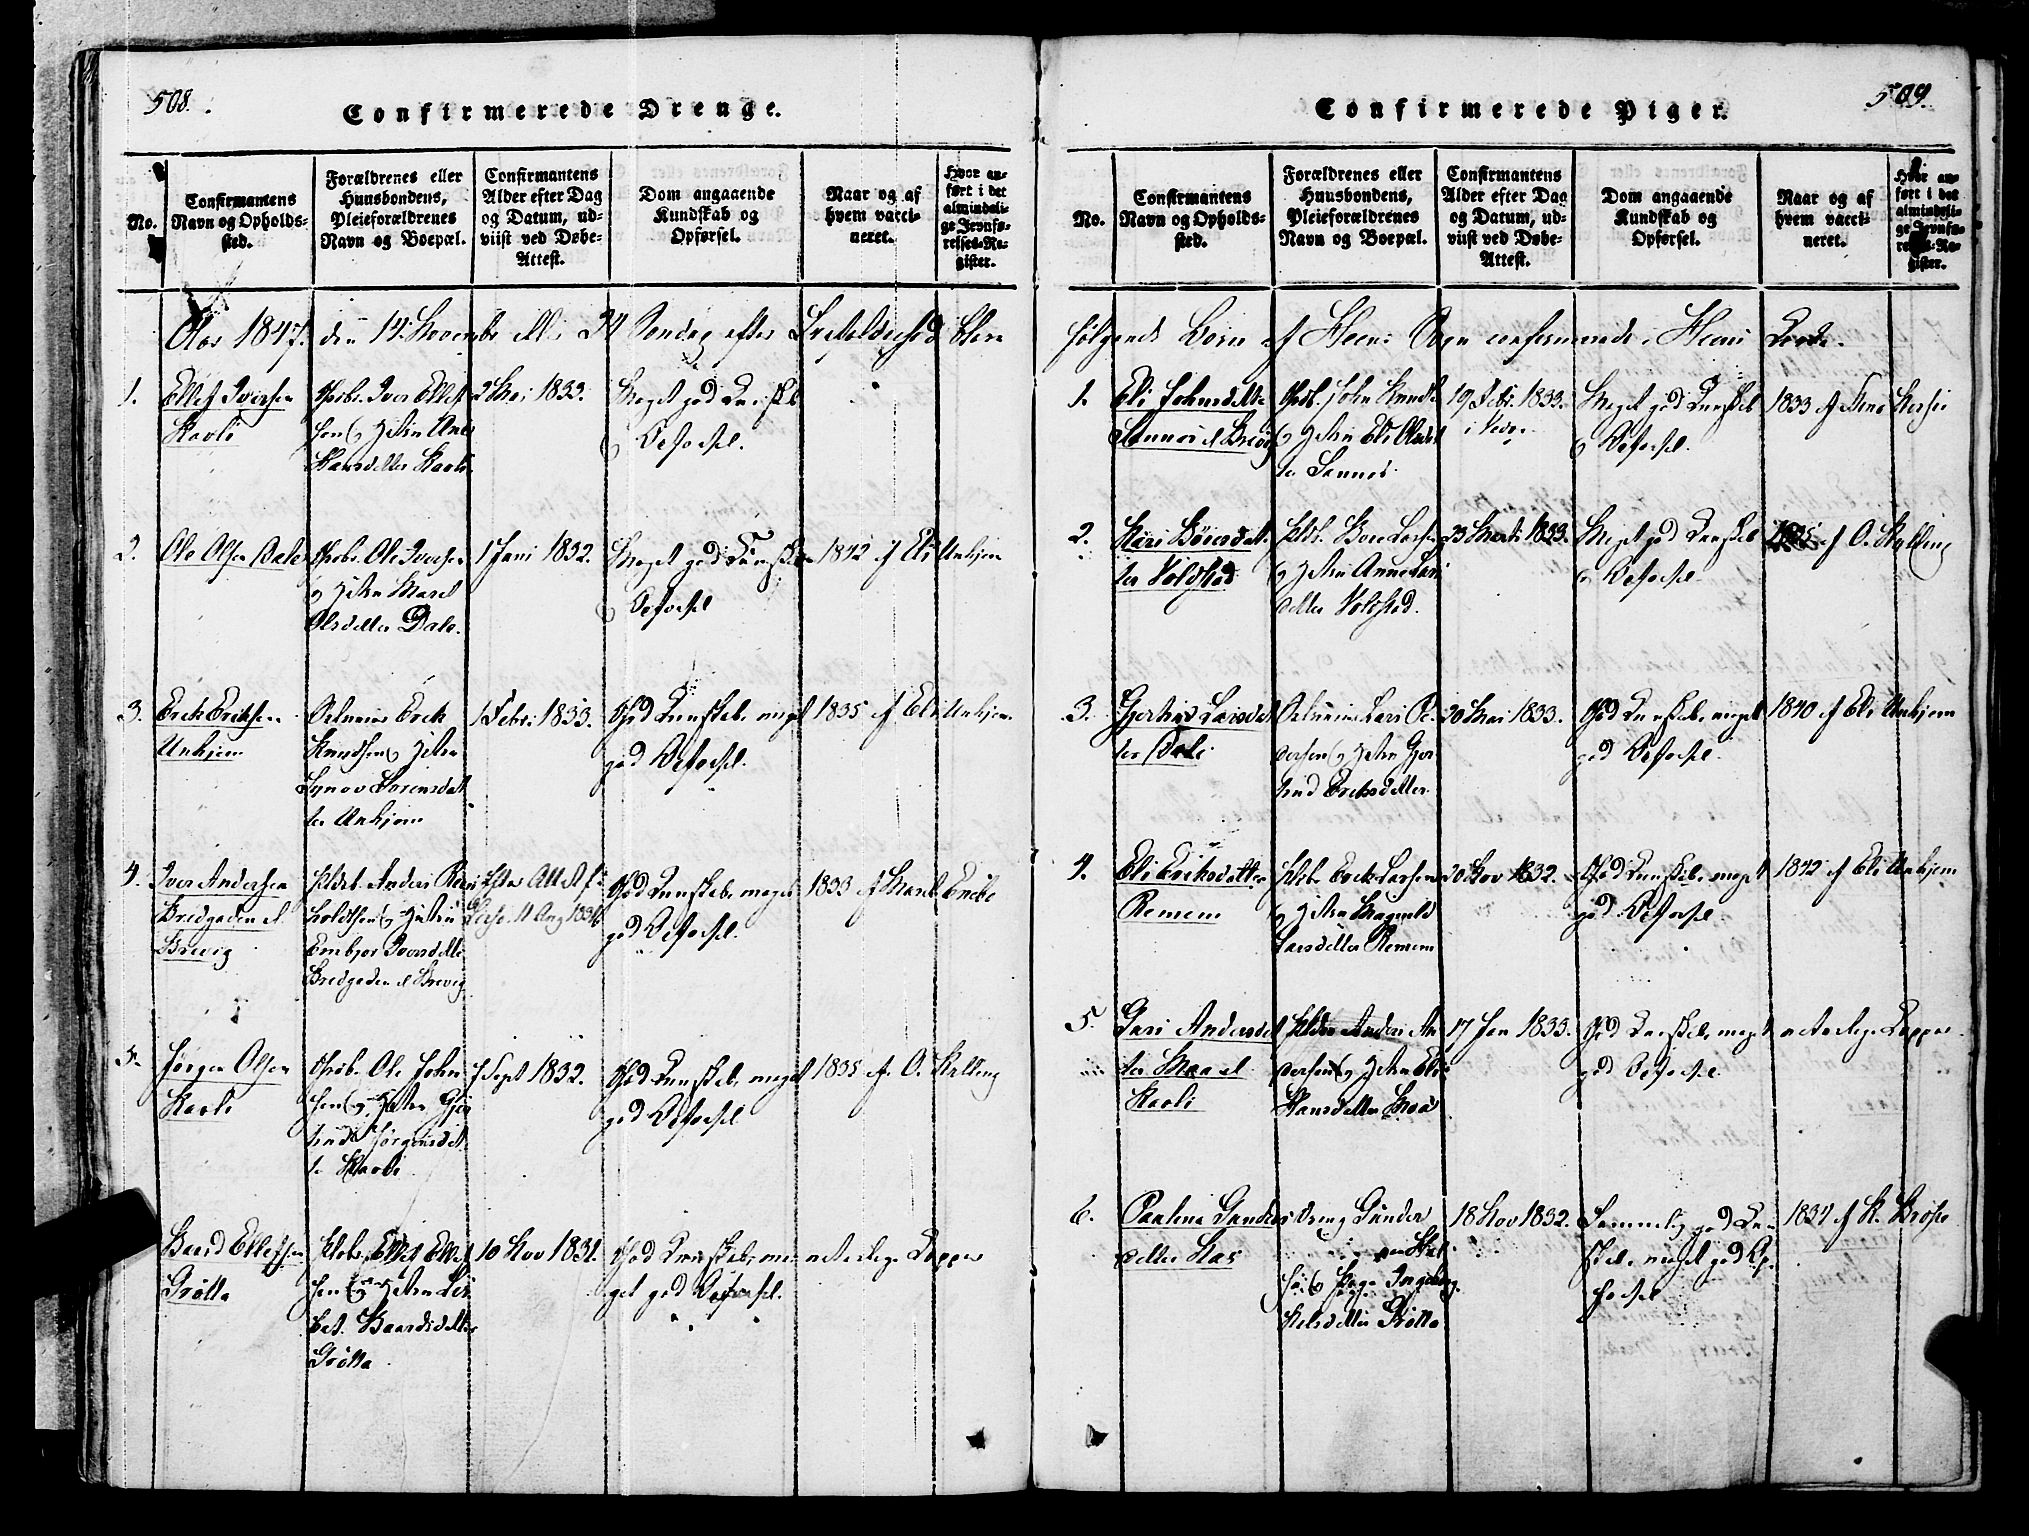 508.
Confirmerede Drenge.
No.
Confirmantens Navn og Opholds-sted.
Forældrenes eller Huusbondens, Pleieforældrenes Navn og Boepæl.
Confirmantens Alder efter Dag og Datum, ud-viist ved Døbe-Attest.
Dom angaaende Kundskab og Opførsel.
Naar og af hvem vacci-neret.
Hvor an-ført i det almindeli-ge Jevnfø-relses-Re-gister.
Aar 1847. den 14 November eller 24 Søndag efter Trefoldighed bleve
1. Ellef Iversen
Kavli
Gbr. Iver Ellef
sen og Hstru Ane
Hansdatter Kavli
2 Mai 1833.
Meget god Kundskab
og Opførsel.
2. Ole Olsen Dale
Gbr. Ole Iversen
og Hstru Maret
Olsdatter Dale.
1 Juni 1832.
Meget god Kundskab
og Opførsel
1842 af Eli Unhjem
3. Erik Eriksen
Unhjem
Erik
Knudsen og Hstru
Synov Sørensdat
ter Unhjem
1 Febr. 1833.
God Kundskab, meget
god Opførsel.
1835 af Eli Unhjem
4. Iver Andersen
Bredgaden
Brevig
Anders
og Hstru
Iversdatter
Bredgaden Brevig
Efter Att. A f
11 Aug 183
God Kundskab, meget
god Opførsel.
1833 af Marit Enebo
5. Jørgen Olsen
Kavli
Gbr. Ole John
sen og Hstru Gjer
trud Jørgensdat
ter Kavli
7 Sept 1832.
God Kundskab, meget
god Opførsel.
1835 af O. Kylling
Baard Ellefsen
Grøtta
Ellef Ellef
sen og Hstru Lis
bet Baardsdatter
Grøtta
10 Nov 1831.
God Kundskab, me
get god Opførsel.
naturlige Kopper
509.
Confirmerede Piger.
No.
Confirmantens Navn og Opholds-sted.
Forældrenes eller Huusbondens, Pleieforældrenes Navn og Boepæl.
Confirmantens Alder efter Dag og Datum, ud-viist ved Døbe-Attest.
Dom angaaende Kundskab og Opførsel.
Naar og af hvem vacci-neret.
Hvor an-ført i det almindeli-ge Jevnfø-relses-Re-gister.
følgende Børn af Hens Sogn confirmerede i Hens Kirke.
1. Eli Johnsdatter
Sannes Brevig
Gbr. John Knudse
og Hstru Eli Olsdat
ter Sannes
19 Febr. 1833.
Meget god Kundskab
og Opførsel.
1833 af
2. Mari Børesdat
ter Voldstad
Børe Larsen
og Hstru Anne Lars
datter Voldstad.
23 Marts 1833.
Meget god Kundskab
og Opførsel
af O. Kylling
3. Gjertrud Larsdat
ter Dale
Lars Pe
dersen og Hstru Gjer
trud Eriksdatter
20 Mai 1833.
God Kundskab, meget
god Opførsel
1840 af Eli Unhjem
4. Eli Eriksdatter
Remem
Erik Larsen
og Hstru Magnild
Larsdatter Remem
20 Nov 1832.
God Kundskab, meget
god Opførsel
1842 af Eli Unhjem
5. Guri Andersdat
ter Moa
Kavli
Anders An
dersen og Hstru Eli
Hansdatter Moa
17 Jan 1833.
God Kundskab, meget
god Opførsel
naturlige Kopper
6. Paulina Gunders
datter Aas
Dreng Gunder
og Pige Ingeborg
Nielsdatter Grøtta
18 Nov 1832.
Temmelig god Kun
skab, meget god Op
førsel
1834 af K. Brøste